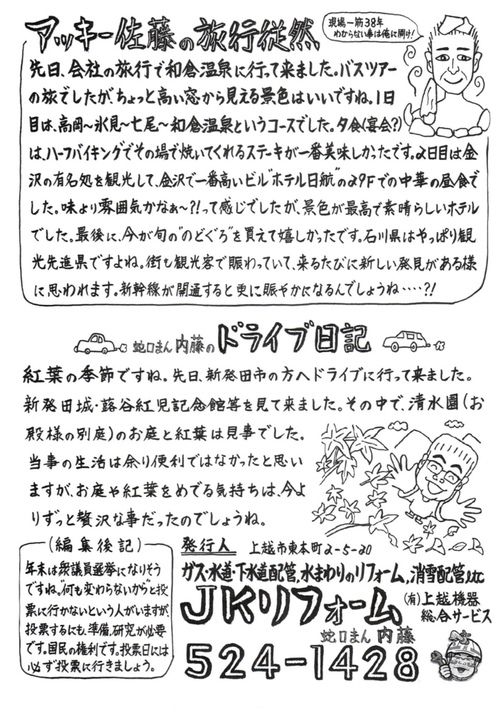 アッキー佐藤の旅行徒然
現場一筋38年
わからない事は俺に聞け!
先日、会社の旅行で和倉温泉に行って来ました。バスツアー
の旅でしたが、ちょっと高い窓から見える景色はいいですね。1日
目は、高岡〜氷見〜七尾〜和倉温泉というコースでした。夕食(宴会?)
は、ハーフバイキングでその場で焼いてくれるステーキが一番美味しかったです。2日目は金
沢の有名処を観光して、金沢で一番高いビル"ホテル日航"の29Fでの中華の昼食で
した。味より雰囲気かなぁ〜?!って感じでしたが、景色が最高で素晴らしいホテル
でした。最後に、今が旬の"のどぐろ"を買えて嬉しかったです。石川県はやっぱり観
光先進県ですよね。街も観光客で賑わっていて、来るたびに新しい発見がある様
に思われます。新幹線が開通すると更に賑やかになるんでしょうね‥‥?!
蛇口まん 内藤のドライブ日記
紅葉の季節ですね。先日、新発田市の方へドライブに行って来ました。
新発田城・蕗谷虹児記念館等を見て来ました。その中で、清水園(お
殿様の別庭)のお庭と紅葉は見事でした。
当事の生活は余り便利ではなかったと思い
ますが、お庭や紅葉をめでる気持ちは、今よ
りずっと贅沢な事だったのでしょうね。
(編集後記)
年末は衆議員選挙になりそう
ですね。"何も変わらないから"と投
票に行かないという人がいますが、
投票するにも、準備、研究が必要
です。国民の権利です。投票日には
必ず投票に行きましょう。
発行人 上越市東本町2-5-20
ガス・水道・下水道配管、水まわりのリフォーム、消雪配管etc
JKリフォーム (有)上越機器
総合サービス
蛇口まん 内藤
524-1428